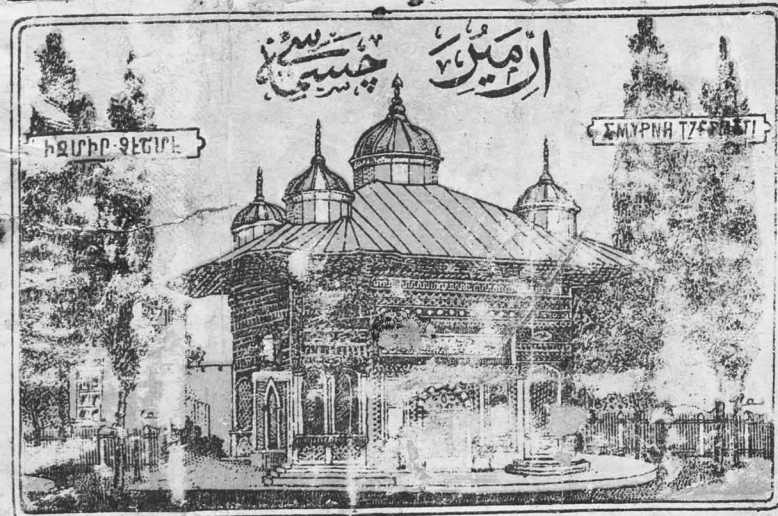 ازمير چشمه سى
ԻԶՄԻՐ ՉԷՇՄԷ
ΣΜΥΡΝΗ